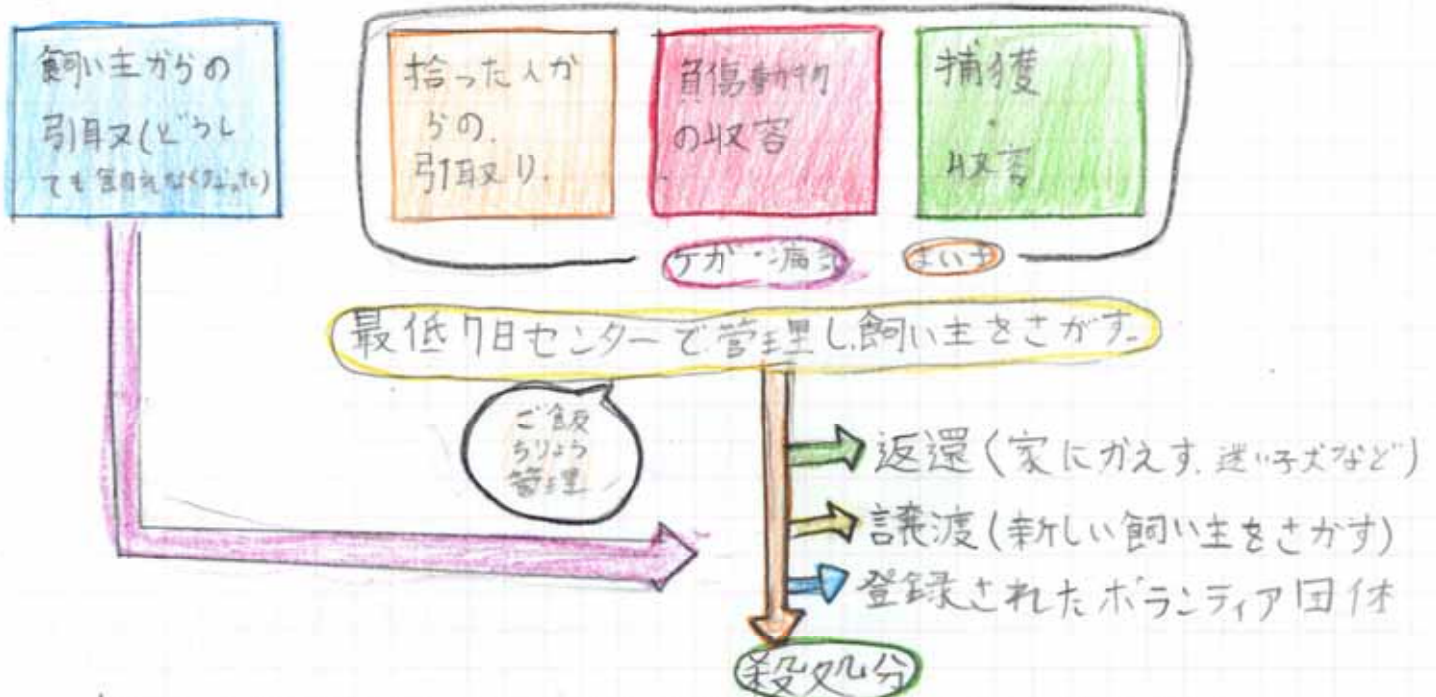 飼い主からの
引取(どうし
ても飼えなくなった)
拾った人か
らの.
引取り.
負傷動物
の収容
捕獲
・
収容
ケガ・病気
まい子
最低7日センターで管理し、飼い主をさがす。
ご飯
ちりょう
管理
返還(家にかえす.迷い子犬など)
譲渡(新しい飼い主をさがす)
登録されたボランティア団体
殺処分